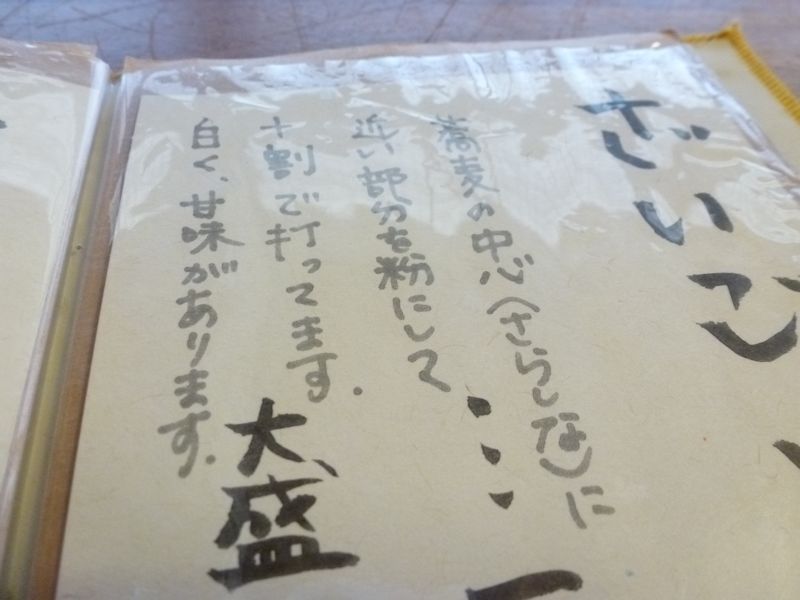 ざいご
蕎麦の中心(さらしな)に
近い部分を粉にして
十割で打ってます.
白く、甘味があります.
大盛